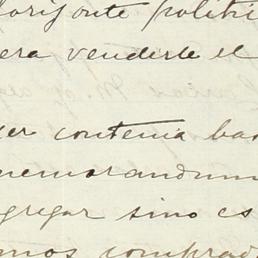 horizonte políti
era venderle el
er contenia bas
memorandum
gregar sino es
mos comprad